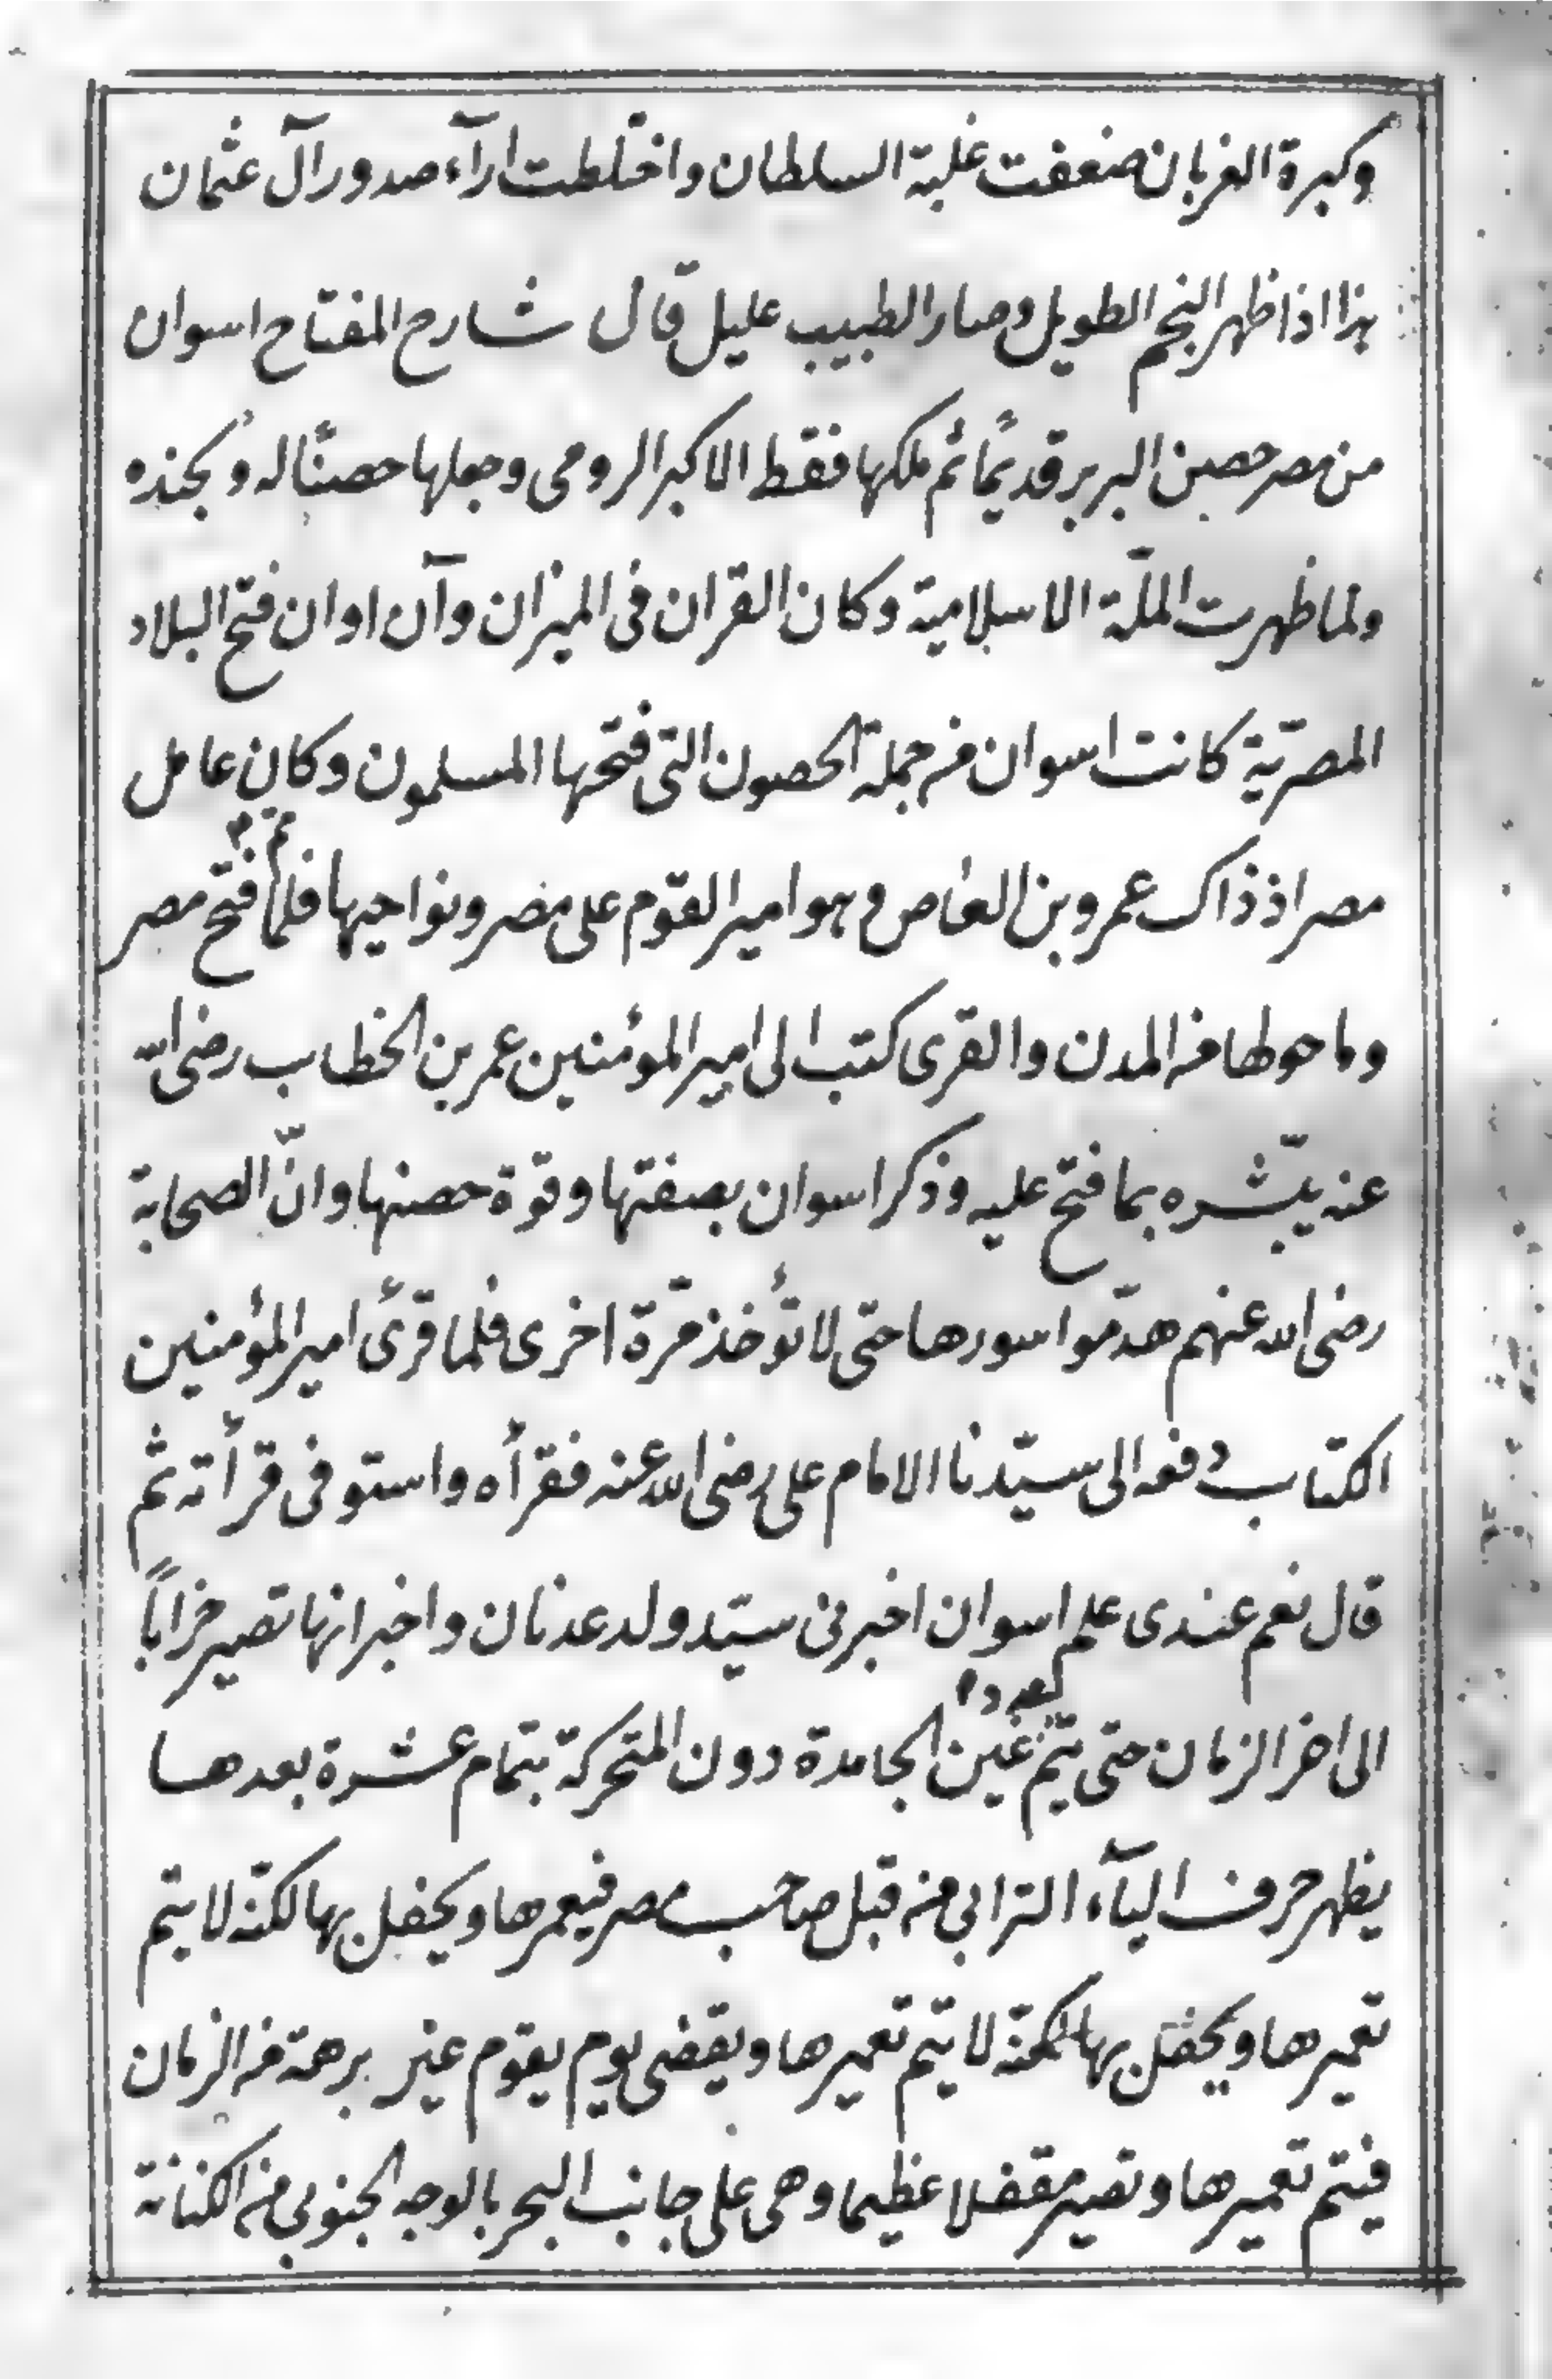 وكبرة الغربان ضعفت غلبة السلطان واختلطت ارآء صدور آل عثمان
هذا اذا ظهر النجم الطويل وصار الطبيب عليل قال شارح المفتاح اسوان
من مصر حصين البربر قديمًا ثم ملكها فقط الاكبر الرومى وجعلها حصنًا له ولجنده
ولما ظهرت الملّة الاسلامية وكان القران فى الميزان وآن اوان فتح البلاد
المصريّة كانت اسوان من جملة الحصون التى فتحها المسلمون وكان عامل
مصر اذ ذاك عمرو بن العاص وهو امير القوم على مصر ونواحيها فلما تم فتح مصر
وما حولها من المدن والقرى كتب الى امير المؤمنين عمر بن الخطاب رضى الله
عنه يبّشره بما فتح عليه وذكر اسوان بصفتها وقوّة حصنها وانّ الصحابة
رضى الله عنهم هدّموا سورها حتى لا تؤخذ مرّة اخرى فلما قرئ امير المؤمنين
الكتاب دفعه الى سيّدنا الامام على رضى الله عنه فقرأه واستوفى قرأته ثم
قال نعم عندى علم اسوان اخبرنى سيّد ولد عدنان واخبر انها تصير خرابًا
الى اخر الزمان حتى يتم عدد غين الجامدة دون المتحركة بتمام عشرة بعدها
يظهر حرف اليآء الترابي من قبل صاحب مصر فيعمرها ويحفل بها لكنّه لا يتم
تعميرها ويحفل بها لكنّه لا يتم تعميرها ويقضى يوم يقوم غير برهة من الزمان
فيتم تعميرها وتصير مقفلا عظيما وهى على جانب البحر بالوجه الجنوبي من الكنانة